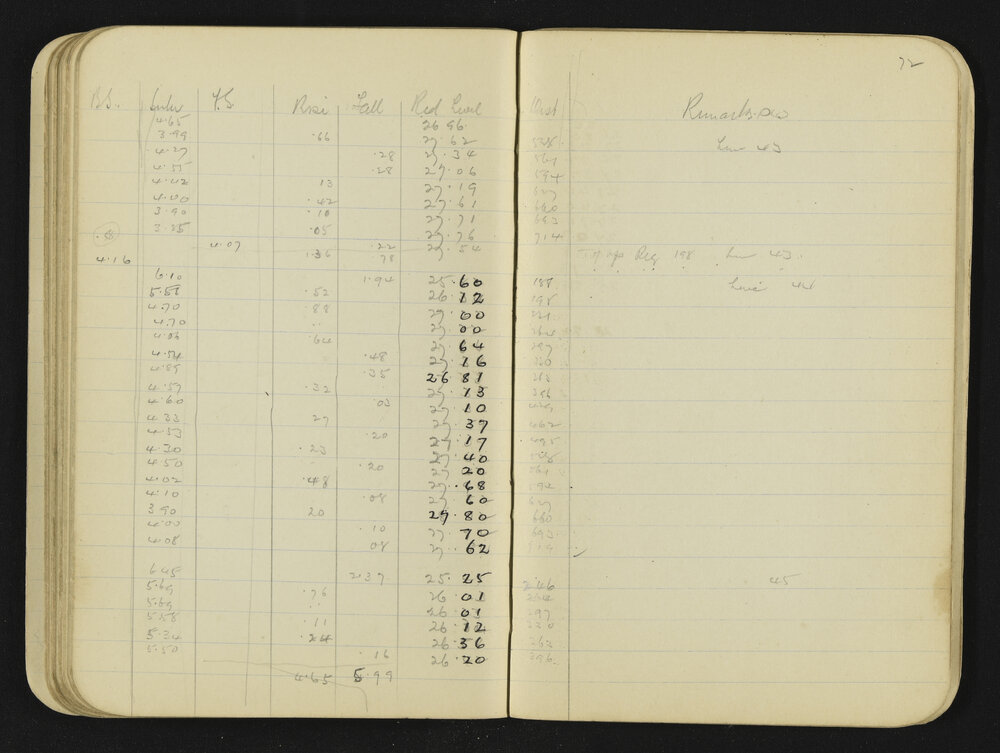 72
B.S. Inter F.S Rise Fall Red Level Dist Remarks
4.65 26 96
3.99 .66 27 62 Line 43
4.27 .28 27.34 561
4.55 .28 27.06 594
4.42 13 27.19 627
4.00 .42 27.61 660
3.90 .10 27.71 693
3.85 .05 27.76 714
4.07 .22 27.54 Peg 198 Line 43
4.16 1.36 .78
6.10 1.94 25.60 188 Line 44
5.58 .52 26.12 198
4.70 .88 27.00 231
4.70 .. 27 00 264
4.06 .64 27 64 297
4.54 .48 27.16 330
4.89 .35 26 81 363
4.57 .32 27.13 396
4.60 .03 27 10 429
4.33 27 27.37 462
4.53 .20 27.17 495
4.30 .23 27.40 528
4.50 .20 27 20 561
4.02 .48 27.68 594
4.10 .08 27 60 627
3.90 20 27.80 660
4.00 .10 27.70 693
4.08 08 27.62 714
6.45 2.37 25.25 246 45
5.69 .76 26 01 264
5.69 .. 26 01 297
5.58 .11 26 12 330
5.34 .24 26.36 363
5.50 .16 26.20 396
4.65 5.99